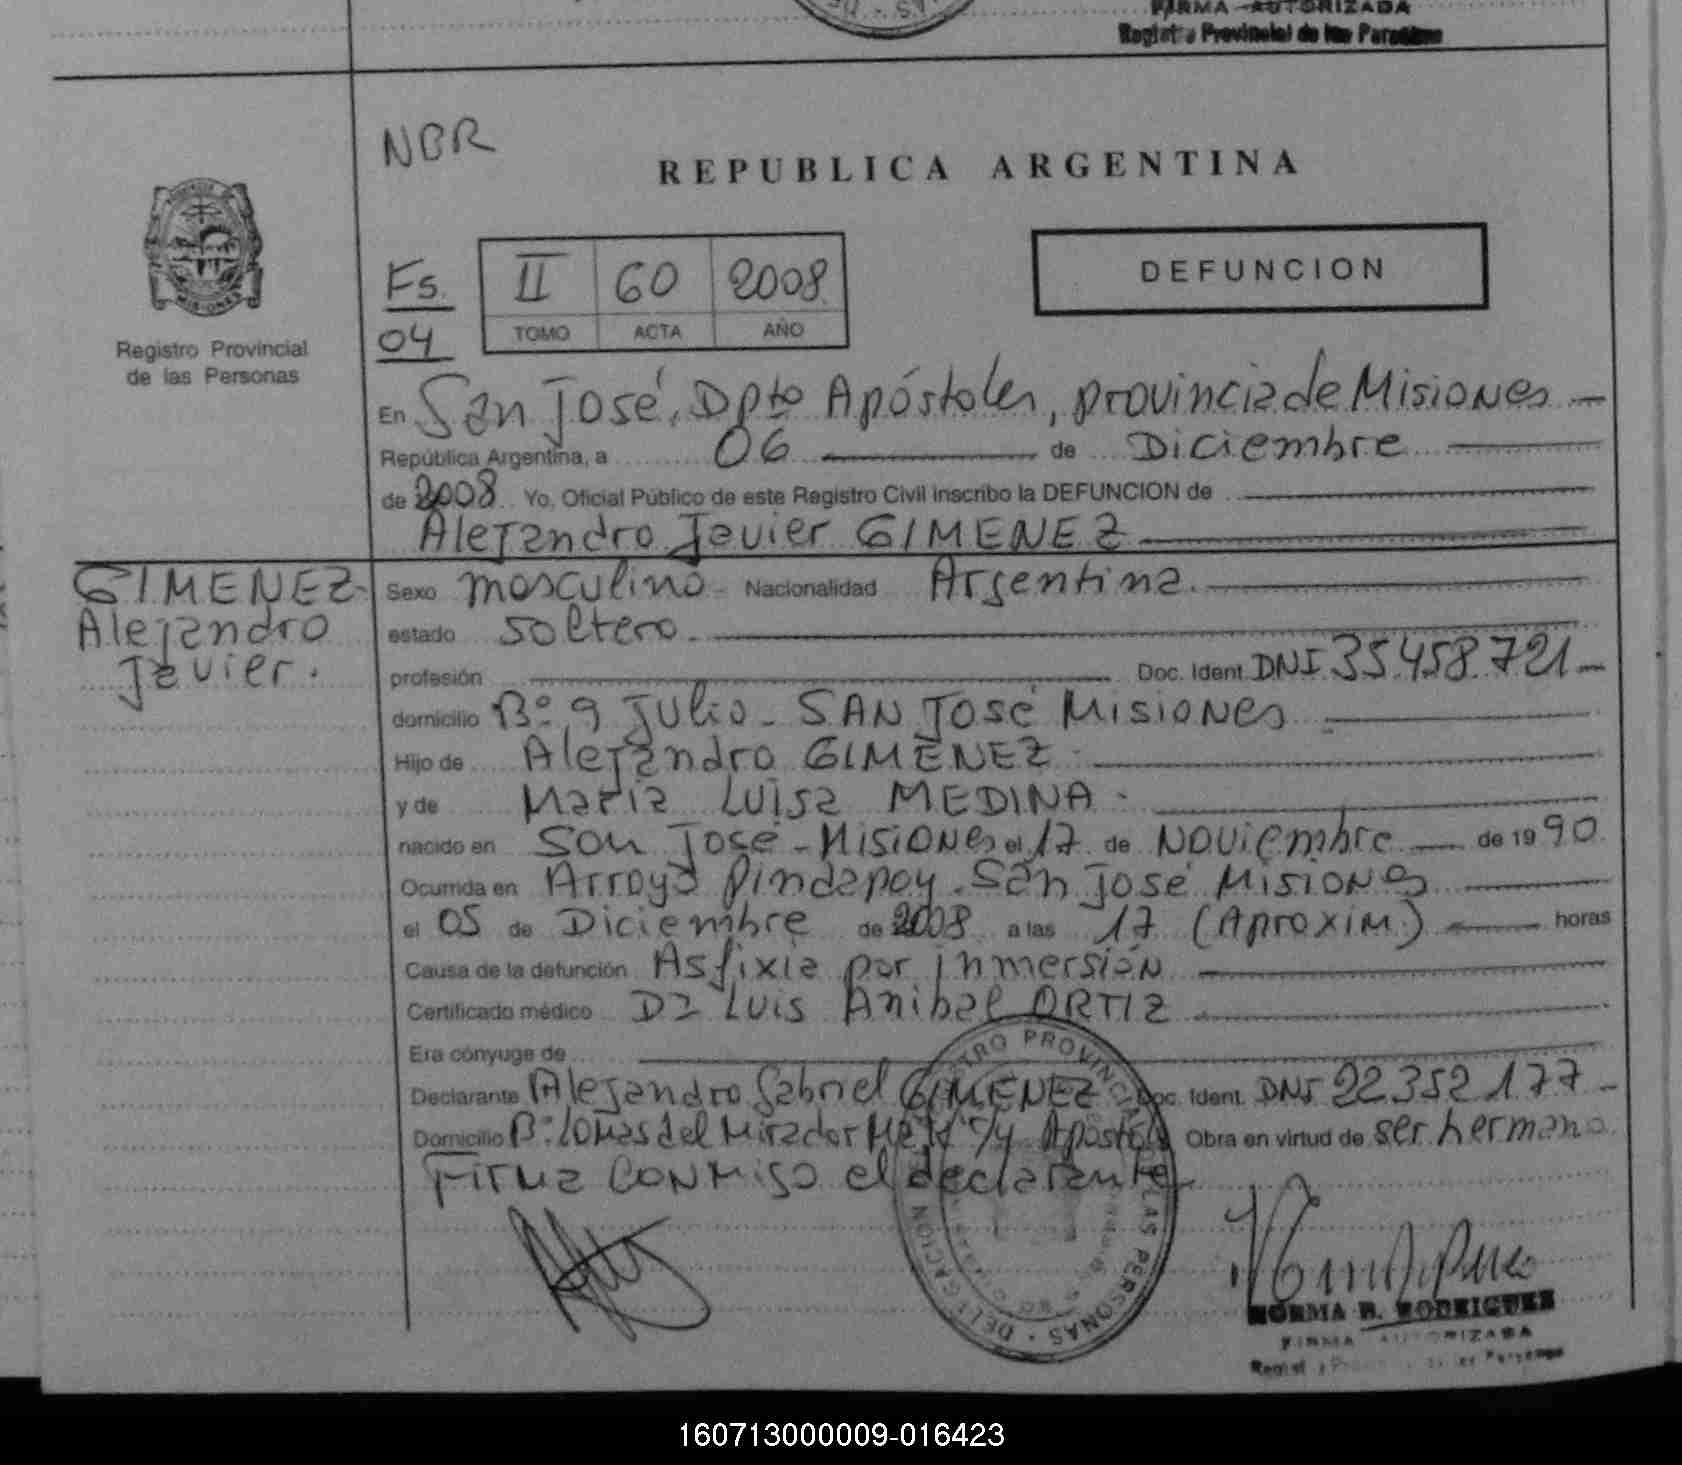 FIRMA AUTORIZADA
Registro Provincial de las Personas
NBR
REPUBLICA ARGENTINA
Fs. 04
II 60 2008
TOMO ACTA AÑO
DEFUNCION
MISIONES
Registro Provincial
de las Personas
En San José, Dpto Apóstoles, provincia de Misiones
República Argentina, a 06 de Diciembre
de 2008 Yo, Oficial Público de este Registro Civil inscribo la DEFUNCION de
Alejandro Javier GIMENEZ
GIMENEZ
Alejandro
Javier.
Sexo masculino Nacionalidad Argentina.
estado soltero.
profesión Doc. Ident. DNI 35.458.721
domicilio B° 9 Julio - SAN José Misiones
Hijo de Alejandro GIMENEZ
y de Maria Luisa MEDINA
nacido en San José - Misiones el 17 de Noviembre de 1990
Ocurrida en Arroyo Pindapoy. San José Misiones
el 05 de Diciembre de 2008 a las 17 (Aproxim.) horas
Causa de la defunción Asfixia por inmersión
Certificado médico Dr Luis Anibal ORTIZ
Era cónyuge de
Declarante Alejandro Gabriel GIMENEZ Doc. Ident. DNI 22.352.177
Domicilio B° Lomas del Mirador Apóstoles Obra en virtud de ser hermano
Firma conmigo el declarante
REGISTRO PROVINCIAL DE LAS PERSONAS - DELEGACION
NORMA B. RODRIGUEZ
FIRMA AUTORIZADA
160713000009-016423